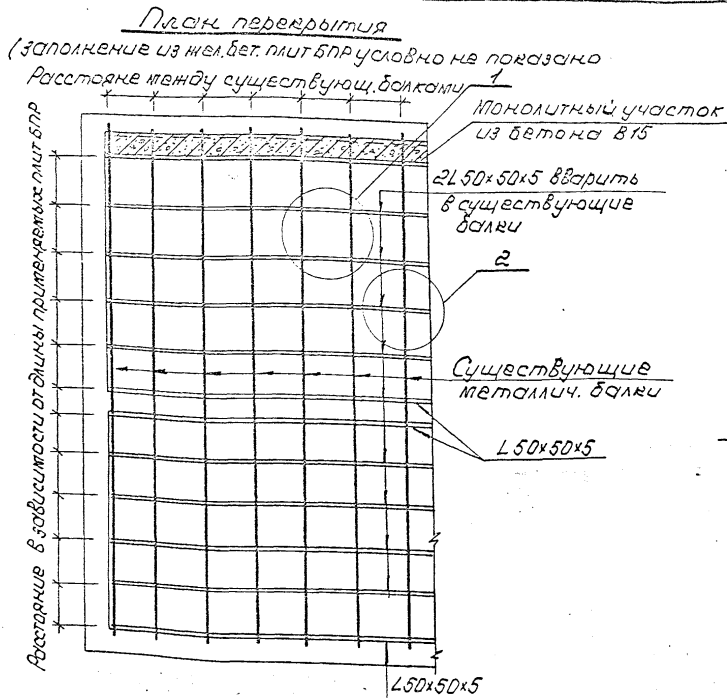 План перекрытия
(заполнение из жел.бет. плит БПР условно не показано
Расстояне между существующ. балками
1
Монолитный участок
из бетона В15
2L50×50×5 вварить
в существующие
балки
2
Существующие
металлич. балки
L50×50×5
L50×50×5
Расстояние в зависимости от длины применяемых плит БПР